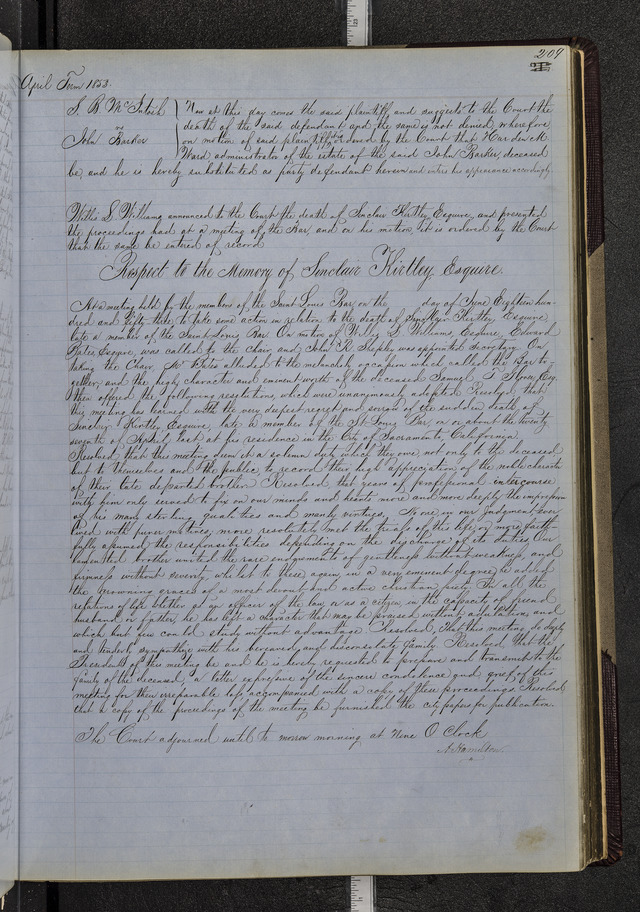 209
April Term 1853.
S. B. McIntosh
vs
John Barker
Now at this day comes the said plaintiff and suggests to the Court the
death of the said defendant and the same is not denied, wherefore
on motion of said plaintiff it is ordered by the Court that
Ward administrator of the estate of the said John Barker, deceased
be, and he is hereby substituted as party defendant herein and enters his appearance accordingly
Willis L Williams announced to the Court the death of Sinclair Kirtley Esquire, and presented
the proceedings had at a meeting of the Bar, and on his motion, it is ordered by the Court
that the same be entered of record
Respect to the Memory of Sinclair Kirtley Esquire.
At a meeting held by the members of the Saint Louis Bar, on the day of June Eighteen hun-
dred and fifty three, to take some action in relation to the death of Sinclair Kirtley Esquire
late a member of the Saint Louis Bar. On motion of Willis L Williams Esquire, Edward
Bates Esquire, was called to the chair, and John R. Shepley was appointed Secretary. On
taking the Chair, Mr Bates alluded to the melancholy occasion which called the Bar to-
gether, and the high character and eminent worth of the deceased Samuel Esq
then offered the following resolutions, which were unanimously adopted. Resolved, that
this meeting has learned with the very deepest regret and sorrow of the sudden death of
Sinclair Kirtley Esquire, late a member of the St Louis Bar, on or about the twenty
seventh of April last at his residence in the City of Sacramento, California.
Resolved that this meeting deem it a solemn duty which they owe not only to the deceased
but to themselves and the public, to record their high appreciation of the noble character
of their late departed brother. Resolved, that years of professional intercourse
with him only served to fix on our minds and hearts more and more deeply the impression
of his many sterling qualities and manly virtues. No one in our judgment ever
lived with purer motives, more resolutely met the trials of this life, or more faith-
fully assumed the responsibilities depending on the discharge of its duties. Our
lamented brother united the rare endowments of gentleness without weakness, and
firmness without severity, whilst to these again in a very eminent degree, he added
the crowning graces of a most devout and active christian piety. In all the
relations of life whether as an officer of the law or as a citizen, in the capacity of friend
husband or father, he has left a character that may be praised without and
which but few can but study without advantage. Resolved, That this meeting do deeply
and tenderly sympathise with his bereaved and disconsolate family. Resolved, that the
President of this meeting be and he is hereby requested to prepare and transmit to the
family of the deceased, a letter expressive of the sincere condolence and grief of this
meeting for their irreparable loss, accompanied with a copy of these proceedings. Resolved
that a copy of the proceedings of the meeting be furnished the city papers for publication.
The Court adjourned until to morrow morning at Nine O Clock
A. Hamilton